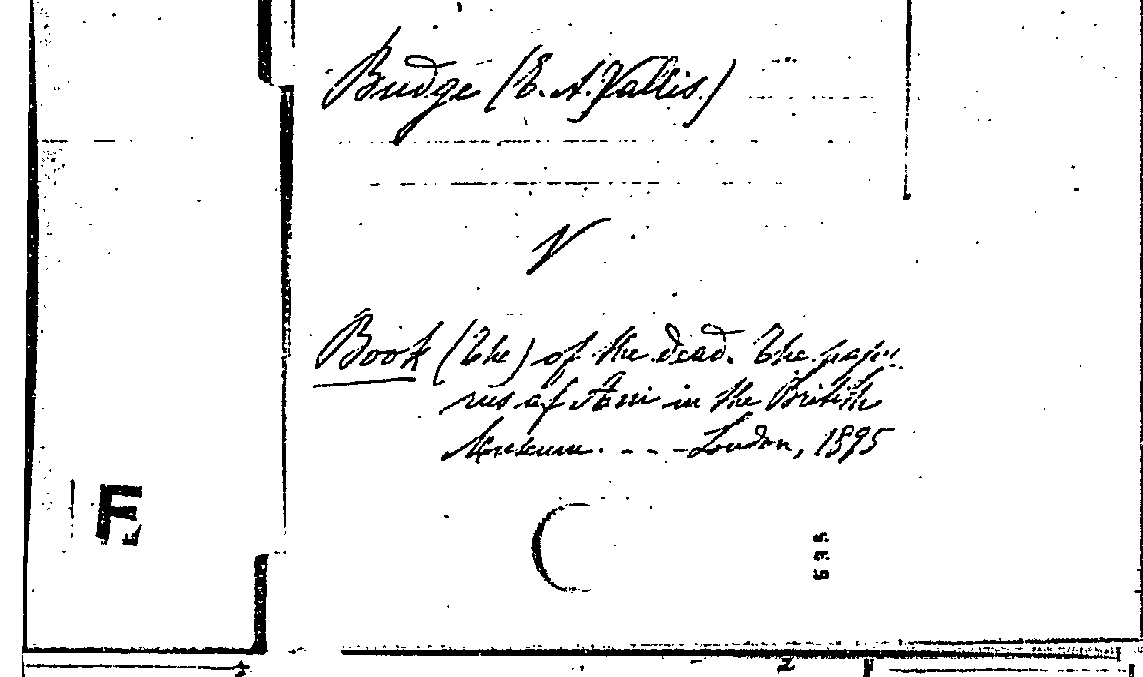 Budge (E. A. Wallis.)
V
Book (The) of the dead. The papy-
rus of Ani in the British
Museum. - - - London, 1895